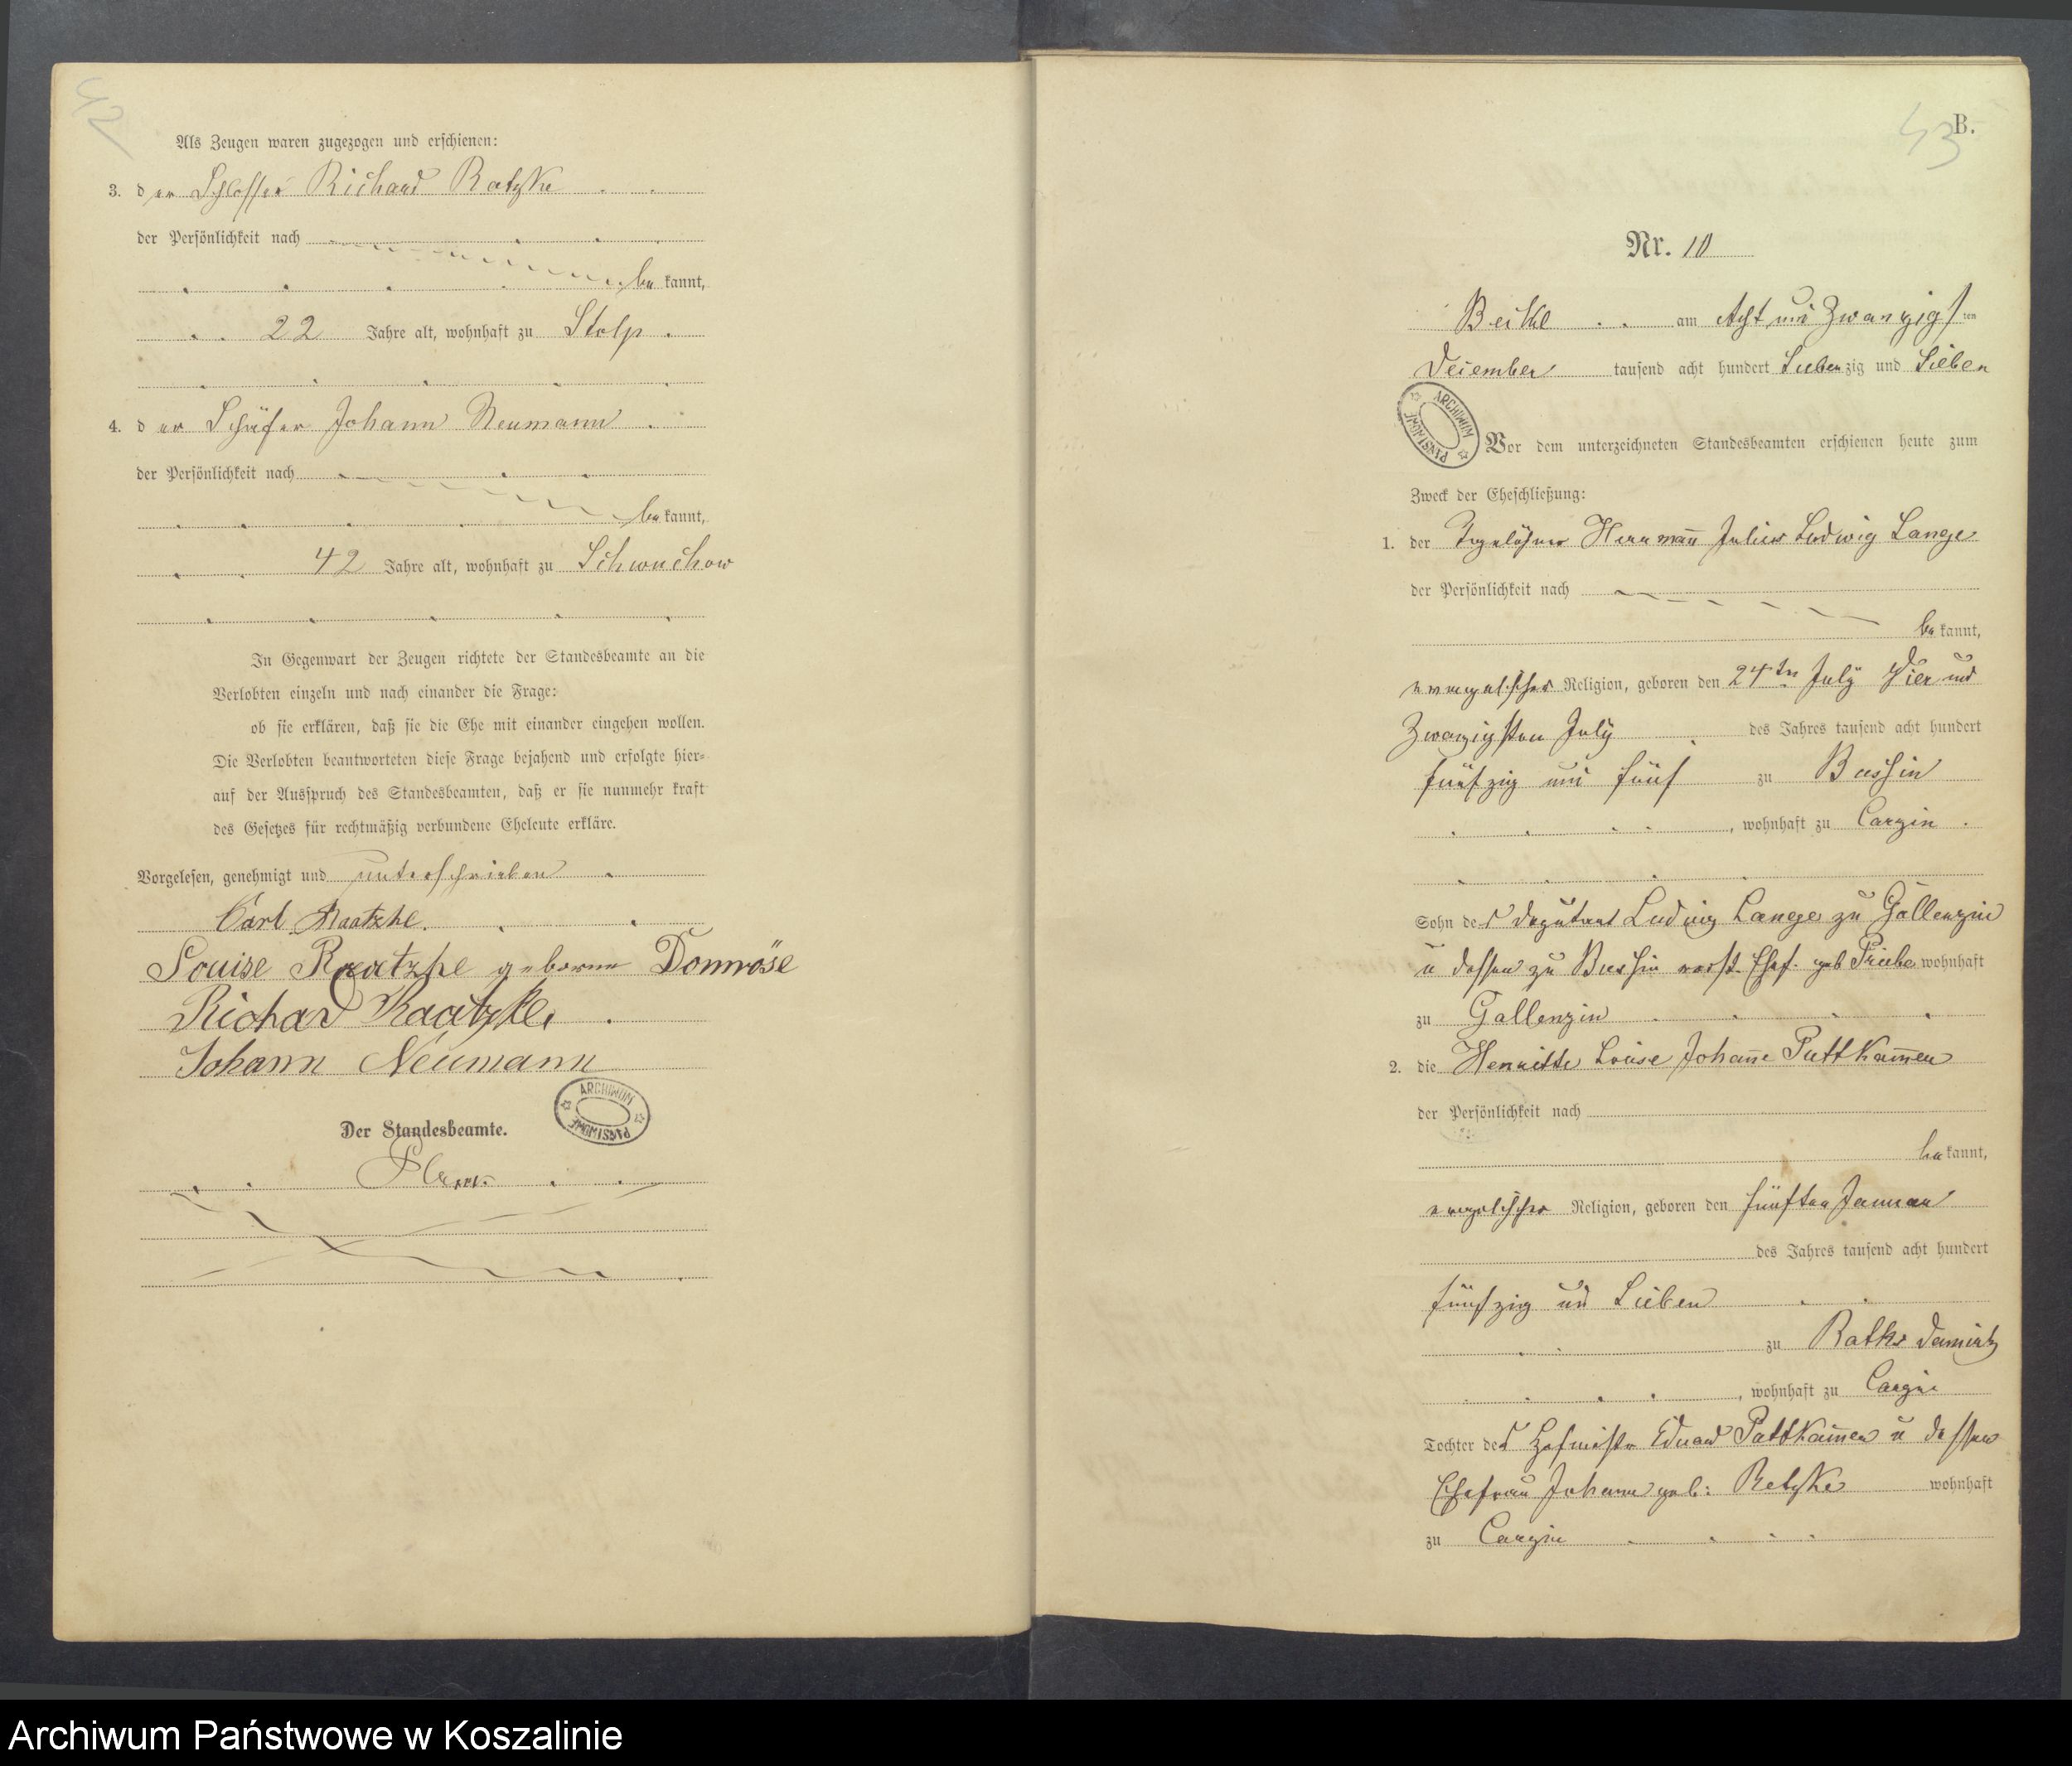 42
Als Zeugen waren zugezogen und erschienen:
3. der Schlosser Richard Ratzke
der Persönlichkeit nach
bekannt,
22 Jahre alt, wohnhaft zu Stolp
4. der Schäfer Johann Neumann
der Persönlichkeit nach
bekannt,
42 Jahre alt, wohnhaft zu Schwuchow
In Gegenwart der Zeugen richtete der Standesbeamte an die
Verlobten einzeln und nach einander die Frage:
ob sie erklären, daß sie die Ehe mit einander eingehen wollen.
Die Verlobten beantworteten diese Frage bejahend und erfolgte hier-
auf der Ausspruch des Standesbeamten, daß er sie nunmehr kraft
des Gesetzes für rechtmäßig verbundene Eheleute erkläre.
Vorgelesen, genehmigt und unterschrieben
Carl Raatzke.
Louise Raatzke geborene Domröse
Richard Raatzke
Johann Neumann
ARCHIWUM PAŃSTWOWE
Der Standesbeamte.
43
B.
Nr. 10
am Acht und Zwanzigsten
December tausend acht hundert Siebenzig und Sieben
ARCHIWUM PAŃSTWOWE
Vor dem unterzeichneten Standesbeamten erschienen heute zum
Zweck der Eheschließung:
1. der Tagelöhner Herrmann Julius Ludwig Lange
der Persönlichkeit nach
bekannt,
evangelischer Religion, geboren den 24ten July Vier und
Zwanzigsten July des Jahres tausend acht hundert
fünfzig und fünf zu Bussin
, wohnhaft zu Carzin
Sohn des Deputant Ludwig Lange zu Gallenzin
u dessen zu Bussin verst. Ehef. geb Priebe wohnhaft
zu Gallenzin
2. die Henriette Louise Johanne Puttkammer
der Persönlichkeit nach
bekannt,
evangelischer Religion, geboren den fünften Januar
des Jahres tausend acht hundert
fünfzig und Sieben
zu Raths Damnitz
, wohnhaft zu Carzin
Tochter des Hofmeister Eduard Puttkammer u dessen
Ehefrau Johanne geb: Retzke wohnhaft
zu Carzin
Archiwum Państwowe w Koszalinie